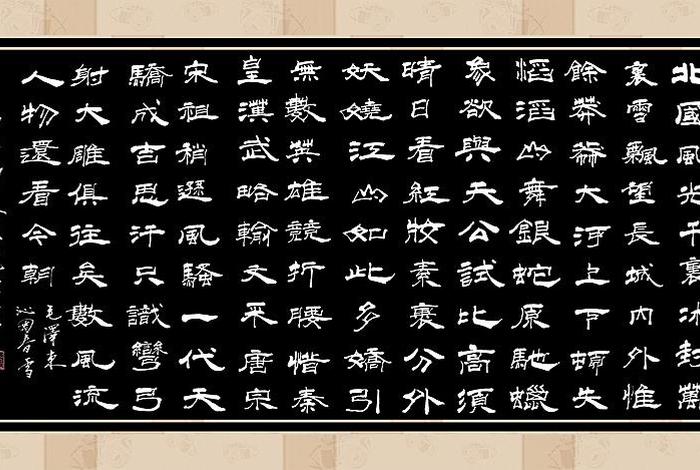 北國風光千裏冰封萬
裏雪飄望長城內外惟
餘莽莽大河上下頓失
滔滔山舞銀蛇原馳蠟
象欲與天公試比高須
晴日看紅妝素裹分外
妖嬈江山如此多嬌引
無數英雄競折腰惜秦
皇漢武略輸文采唐宗
宋祖稍遜風騷一代天
驕成吉思汗只識彎弓
射大雕俱往矣數風流
人物還看今朝
毛澤東
沁園春雪